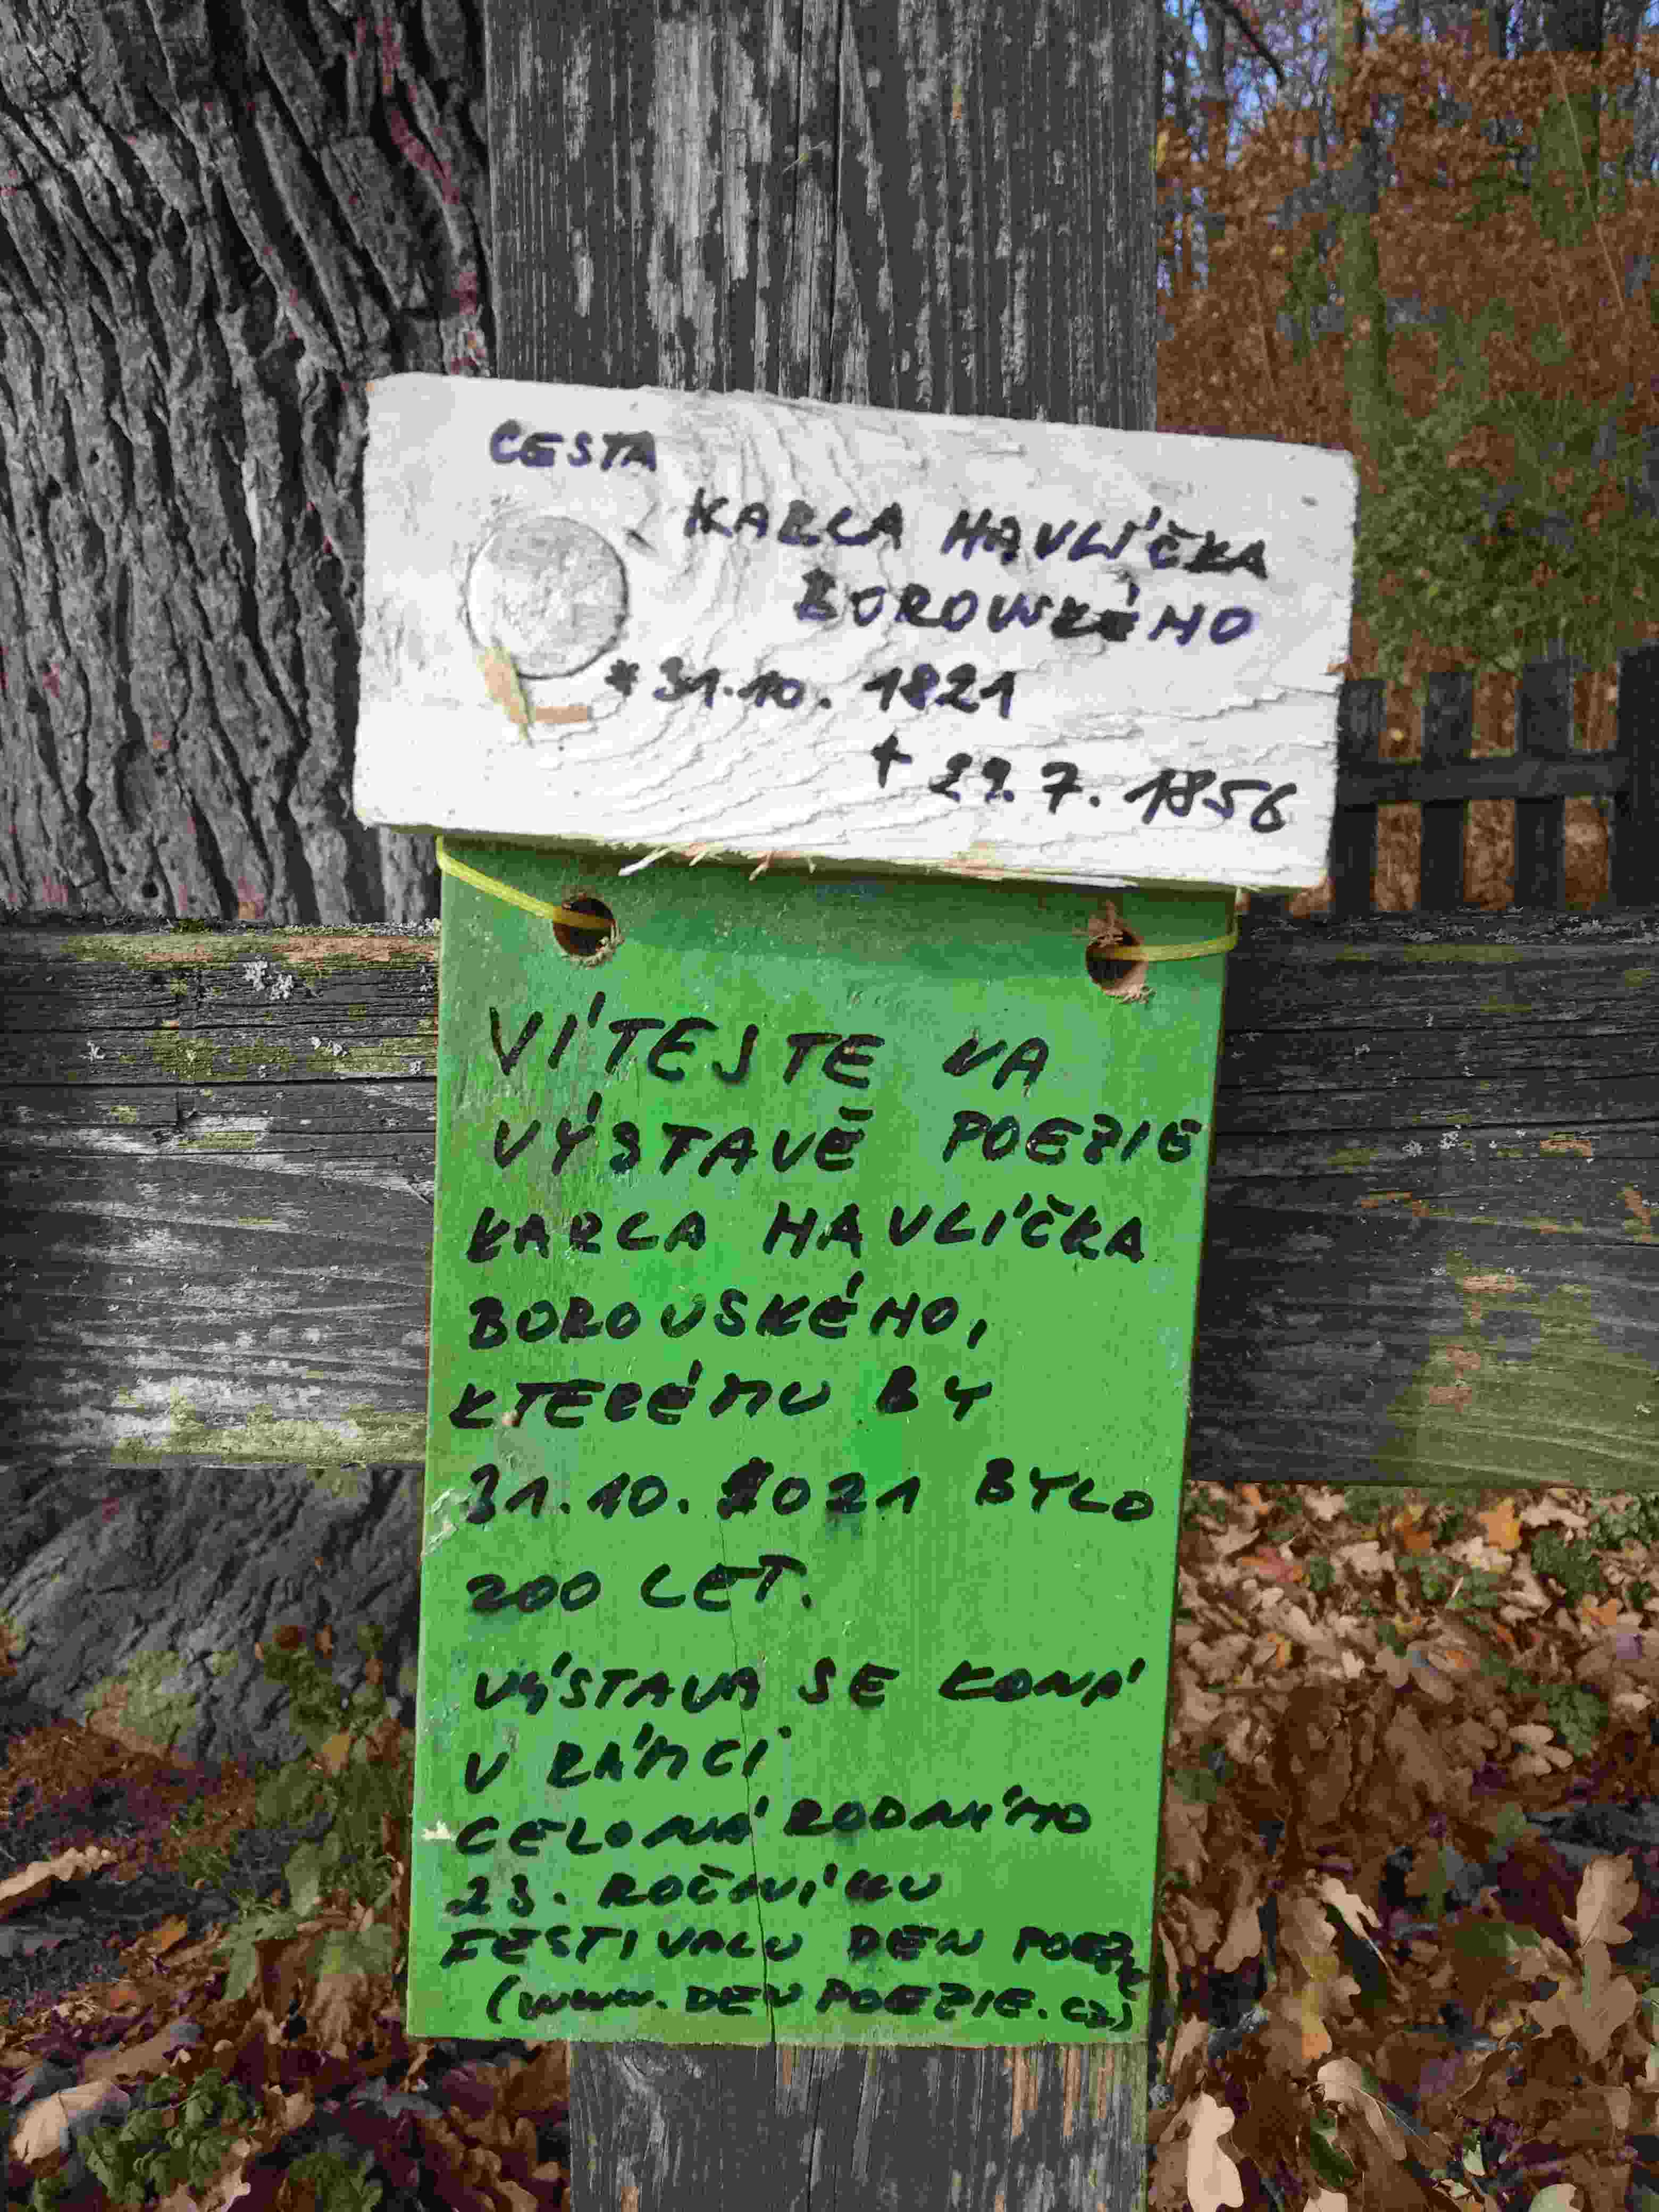 CESTA
KARLA HAVLÍČKA
BOROVSKÉHO
*31.10. 1821
+ 29.7. 1856
VÍTEJTE NA
VÝSTAVĚ POEZIE
KARLA HAVLÍČKA
BOROVSKÉHO,
KTERÉMU BY
31.10. 2021 BYLO
200 LET.
VÝSTAVA SE KONÁ
V RÁMCI
CELONÁRODNÍHO
23. ROČNÍKU
FESTIVALU DEN POEZIE
(WWW.DENPOEZIE.CZ)